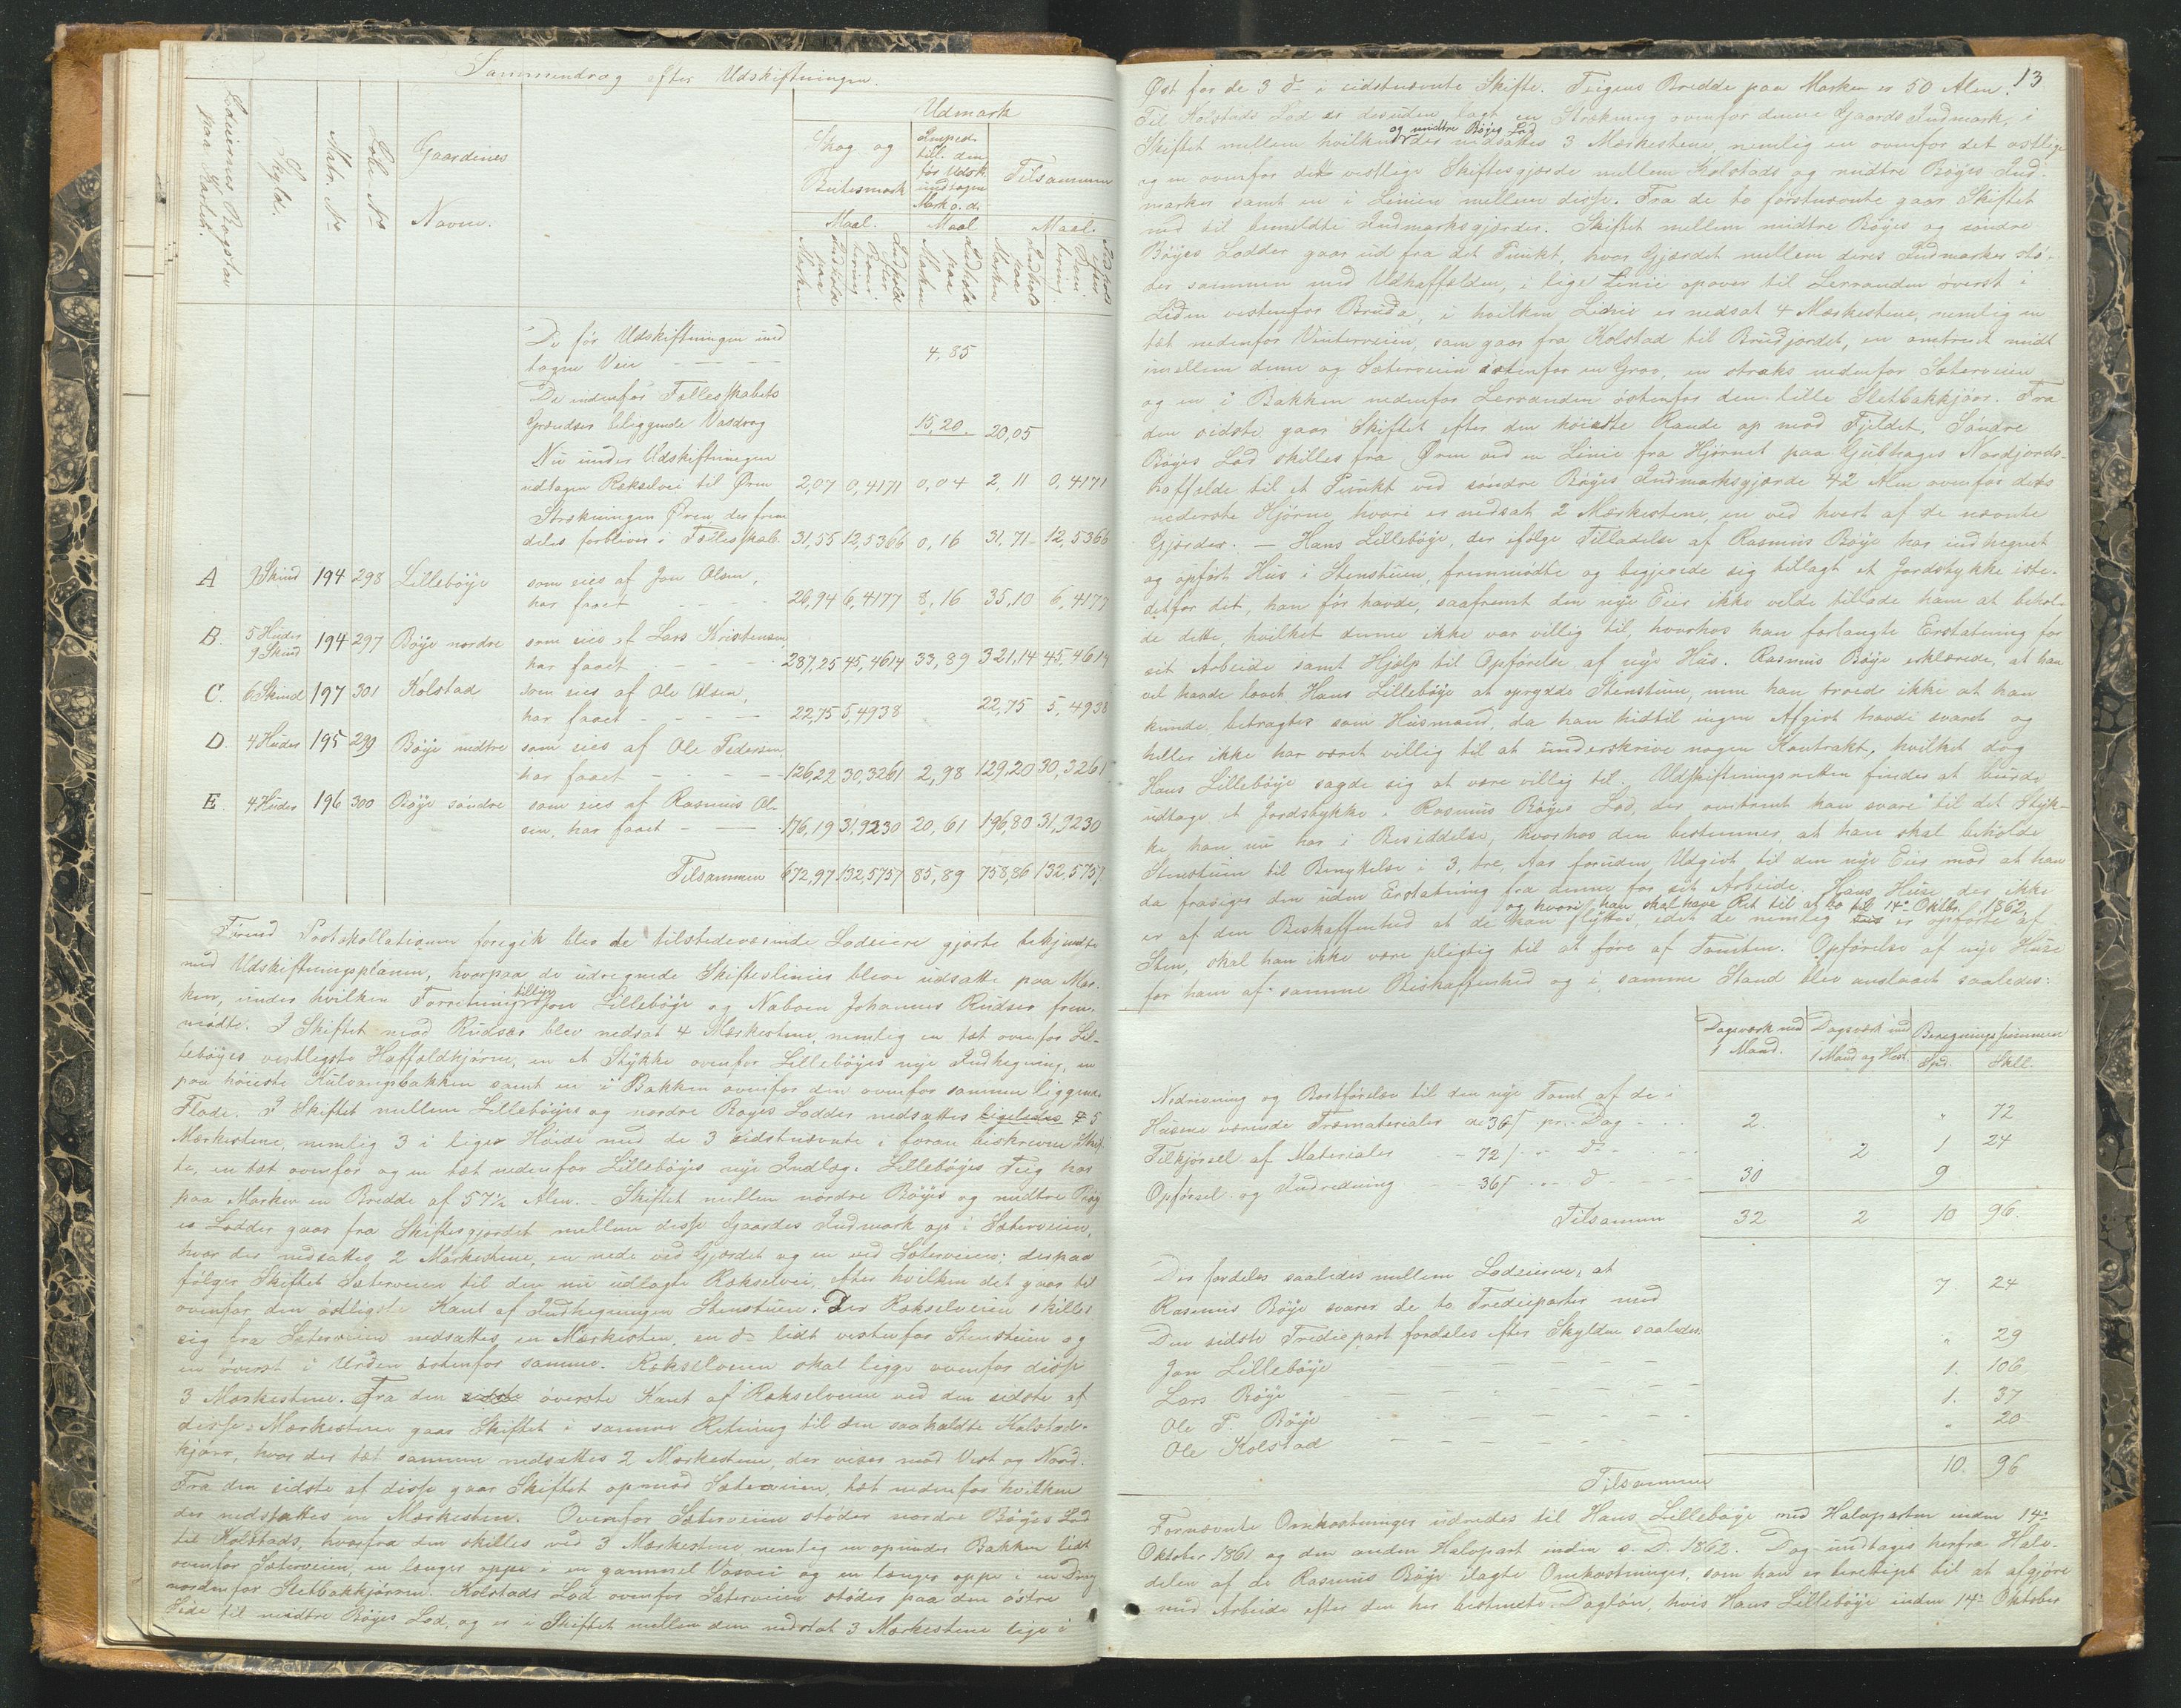 Sammendrag efter Udskiftningen.
Lodeiernes Bogstav paa Kartet.
Skyld.
Matr. No
Løbe No
Gaardenes Navne.
Udmark
Skog og Beitesmark
Imped. till. den før Udsk. undtagen Mark o.d.
Tilsammen
Maal. Maal Maal.
Indhold paa Marken
Indhold efter Bonitering
Indhold paa Marken
Indhold paa Marken
Indhold efter Bonitering.
De før Udskiftningen und
tagen Veie — — — 4,85
De indenfor Fællesskabets
Grændser beliggende Vasdrag 15,20. 20,05
Nu under Udskiftningen
udtagen Rækselvei til Øren 2,07 0,4171 0,04 2,11 0,4171
Strækningen Øren der frem
deles forbliver i Fællesskab 31,55 12,5366 0,16 31,71 12,5366
A 9 Skind 194 298 Lillebøye som eies af Jon Olsen,
har faaet - - - - 26,94 6,4177 8,16 35,10 6,4177
B. 5 Huder 9 Skind 194 297 Bøye nordre som eies af Lars Kristensen
har faaet - - - - 287,25 45,4614 33,89 321,14 45,4614
C. 6 Skind 197 301 Kolstad som eies af Ole Olsen,
har faaet - - - - 22,75 5,4938 22,75 5,4938
D. 4 Huder 195 299 Bøye midtre som eies af Ole Pedersen
har faaet - - - - 126,22 30,3261 2,98 129,20 30,3261
E. 4 Huder 196 300 Bøye søndre som eies af Rasmus Ol-
sen, har faaet - — 176,19 31,9230 20,61 196,80 31,9230
Tilsammen 672,97 132,5757 85,89 758,86 132,5757
Førend Protokollationen foregik blev de tilstedeværende Lodeiere gjorte bekjendte
med Udskiftningsplanen, hvorpaa de udregnede Skifteslinier bleve udsatte paa Mar-
ken, under hvilken Forretning tillige Jon Lillebøye og Naboen Johannes Rudser frem-
mødte. I Skiftet mod Rudser blev nedsat 4 Mærkestene, nemlig en tæt ovenfor Lil-
lebøyes vestligste Haffældhjørne, en et Stykke ovenfor Lillebøyes nye Indhegning, en
paa høieste Kulvangsbakken samt en i Bakken ovenfor den ovenfor samme liggende
Flade. I Skiftet mellem Lillebøyes og nordre Bøyes Lodder nedsættes ligeledes 5
Mærkestene, nemlig 3 i lige Høide med de 3 sidstnævnte i foran beskrevne Skif-
te, en tæt ovenfor og en tæt nedenfor Lillebøyes nye Indlæg. Lillebøyes Teig har
paa Marken en Bredde af 57½ Alen. - Skiftet mellem nordre Bøyes og midtre Bøy-
es Lodder gaar fra Skiftesgjerdet mellem disse Gaardes Indmark op i Sæterveien,
hvor der nedsattes 2 Mærkestene, en nede ved Gjerdet og en ved Sæterveien; derpaa
følger Skiftet Sæterveien til den nu udlagte Rækselvei, efter hvilken det gaar til
ovenfor den østligste Kant af Indhegningen Stenstuen. Der Rækselveien skiller
sig fra Sæterveien nedsættes en Mærkesten, en do lidt vestenfor Stenstuen og
en øverst i Urden østenfor samme. Rækselveien skal ligge ovenfor disse
3 Mærkestene. Fra den sidste øverste Kant af Rækselveien ved den sidste af
disse Mærkestene gaar Skiftet i samme Retning til den saakaldte Kolstad-
kjørr, hvor der tæt sammen nedsættes 2 Mærkestene, der viser mod Vest og Nord.
Fra den sidste af disse gaar Skiftet opmod Sæterveien, tæt nedenfor hvilken
der nedsættes en Mærkesten. Ovenfor Sæterveien støder nordre Bøyes Lod
til Kolstads, hvorfra den skilles ved 3 Mærkestene nemlig en opunder Bakken lidt
ovenfor Sæterveien, en længer oppe i en gammel Vasvei og en længer oppe i en Drag
nordenfor Sletbakkjørren. Kolstads Lod ovenfor Sæterveien støder paa den østre
Side til midtre Bøyes Lod, og er i Skiftet mellem dem nedsat 3 Mærkestene lige i
13
Øst for de 3 do i sidstnævnte Skifte. Teigens Bredde paa Marken er 50 Alen.
Til Kolstads Lod er desuden lagt en Strækning ovenfor denne Gaards Indmark, i
Skiftet mellem hvilken og midtre Bøyes Lod der nedsattes 3 Mærkestene, nemlig en ovenfor det østlige
og en ovenfor det vestlige Skiftesgjerde mellem Kolstads og midtre Bøyes Ind-
marker samt en i Linien mellem disse. Fra de to førstnævnte gaar Skiftet
ned til bemeldte Indmarksgjerder. Skiftet mellem midtre Bøyes og søndre
Bøyes Lodder gaar ud fra det Punkt, hvor Gjerdet mellem deres Indmarker stø-
der sammen med Udhaffælden, i lige Linie opover til Lerranden øverst i
Liden vestenfor Bruda, i hvilken Linie er nedsat 4 Mærkestene, nemlig en
tæt nedenfor Vinterveien, som gaar fra Kolstad til Brudjordet, en omtrent midt
imellem denne og Sæterveien østenfor en Grav, en straks nedenfor Sæterveien
og en i Bakken nedenfor Lerranden østenfor den lille Sletbakkjørr. Fra
den sidste gaar Skiftet efter den høieste Rande op mod Fjeldet. Søndre
Bøyes Lod skilles fra Øren ved en Linie fra Hjørnet paa Gubhages Nordjords-
haffælde til et Punkt ved søndre Bøyes Indmarksgjerde 42 Alen ovenfor dets
nederste Hjørne, hvori er nedsat 2 Mærkestene, en ved hvert af de nævnte
Gjerder. — Hans Lillebøye, der ifølge Tilladelse af Rasmus Bøye har indhegnet
og opført Hus i Stenstuen, fremmødte og begjerede sig tillagt et Jordstykke iste-
detfor det, han før havde, saafremt den nye Eier ikke vilde tillade ham at behol-
de dette, hvilket denne ikke var villig til, hvorhos han forlangte Erstatning for
sit Arbeide samt Hjælp til Opførelse af nye Hus. Rasmus Bøye erklærede, at han
vel havde lovet Hans Lillebøye at oprydde Stenstuen, men han troede ikke at han
kunde betragtes som Husmand, da han hidtil ingen Afgivt havde svaret og
heller ikke har været villig til at underskrive nogen Kontrakt, hvilket dog
Hans Lillebøye sagde sig at være villig til. Udskiftningsretten findes at burde
udtage et Jordstykke i Rasmus Bøyes Lod, der omtrent kan svare til det Styk-
ke, han nu har i Besiddelse, hvorhos den bestemmer, at han skal beholde
Stenstuen til Benyttelse i 3, tre, Aar foruden Udgivt til den nye Eier mod at han
da frasiges den uden Erstatning fra denne for sit Arbeide. Hans Huse, der ikke
og hvori han skal have Ret til at bo til 14de Oktbr. 1862,
er af den Beskaffenhed at de kan flyttes, idet de nemlig er opførte af
Sten, skal han ikke være pligtig til at føre af Tomten. Opførelse af nye Huse
for ham af samme Beskaffenhed og i samme Stand blev anslaaet saaledes:
Dagsværk med 1 Mand. Dagsværk med 1 Mand og Hest Beregningssummen
Spd. Skill.
Nedrivning og Bortførelse til den nye Tomt af de i
Husene værende Træmaterialer a 36 s pr. Dag - - . 2. " 72
Tilkjørsel af Materialer - - 72 s - - do - - 2 1 24
Opførsel og Indredning - - 36 s - - do - - 30 9
Tilsammen 32 2 10 96.
Der fordeles saaledes mellem Lodeierne, at
Rasmus Bøye svarer de to Trediparter med 7 24
Den sidste Tredjepart fordeles efter Skylden saaledes:
Jon Lillebøye — — — " 29
Lars Bøye — — — 1. 106
Ole P. Bøye — — — 1. 37
Ole Kolstad — — — " 20
Tilsammen 10. 96
Fornævnte Omkostninger udredes til Hans Lillebøye med Halvparten inden 14de
Oktober 1861 og den anden Halvpart inden s. D. 1862. Dog undtages herfra Halv-
delen af de Rasmus Bøye ilagte Omkostninger, som han er berettiget til at afgjøre
med Arbeide efter den her bestemte Dagløn, hvis Hans Lillebøye inden 14de Oktober